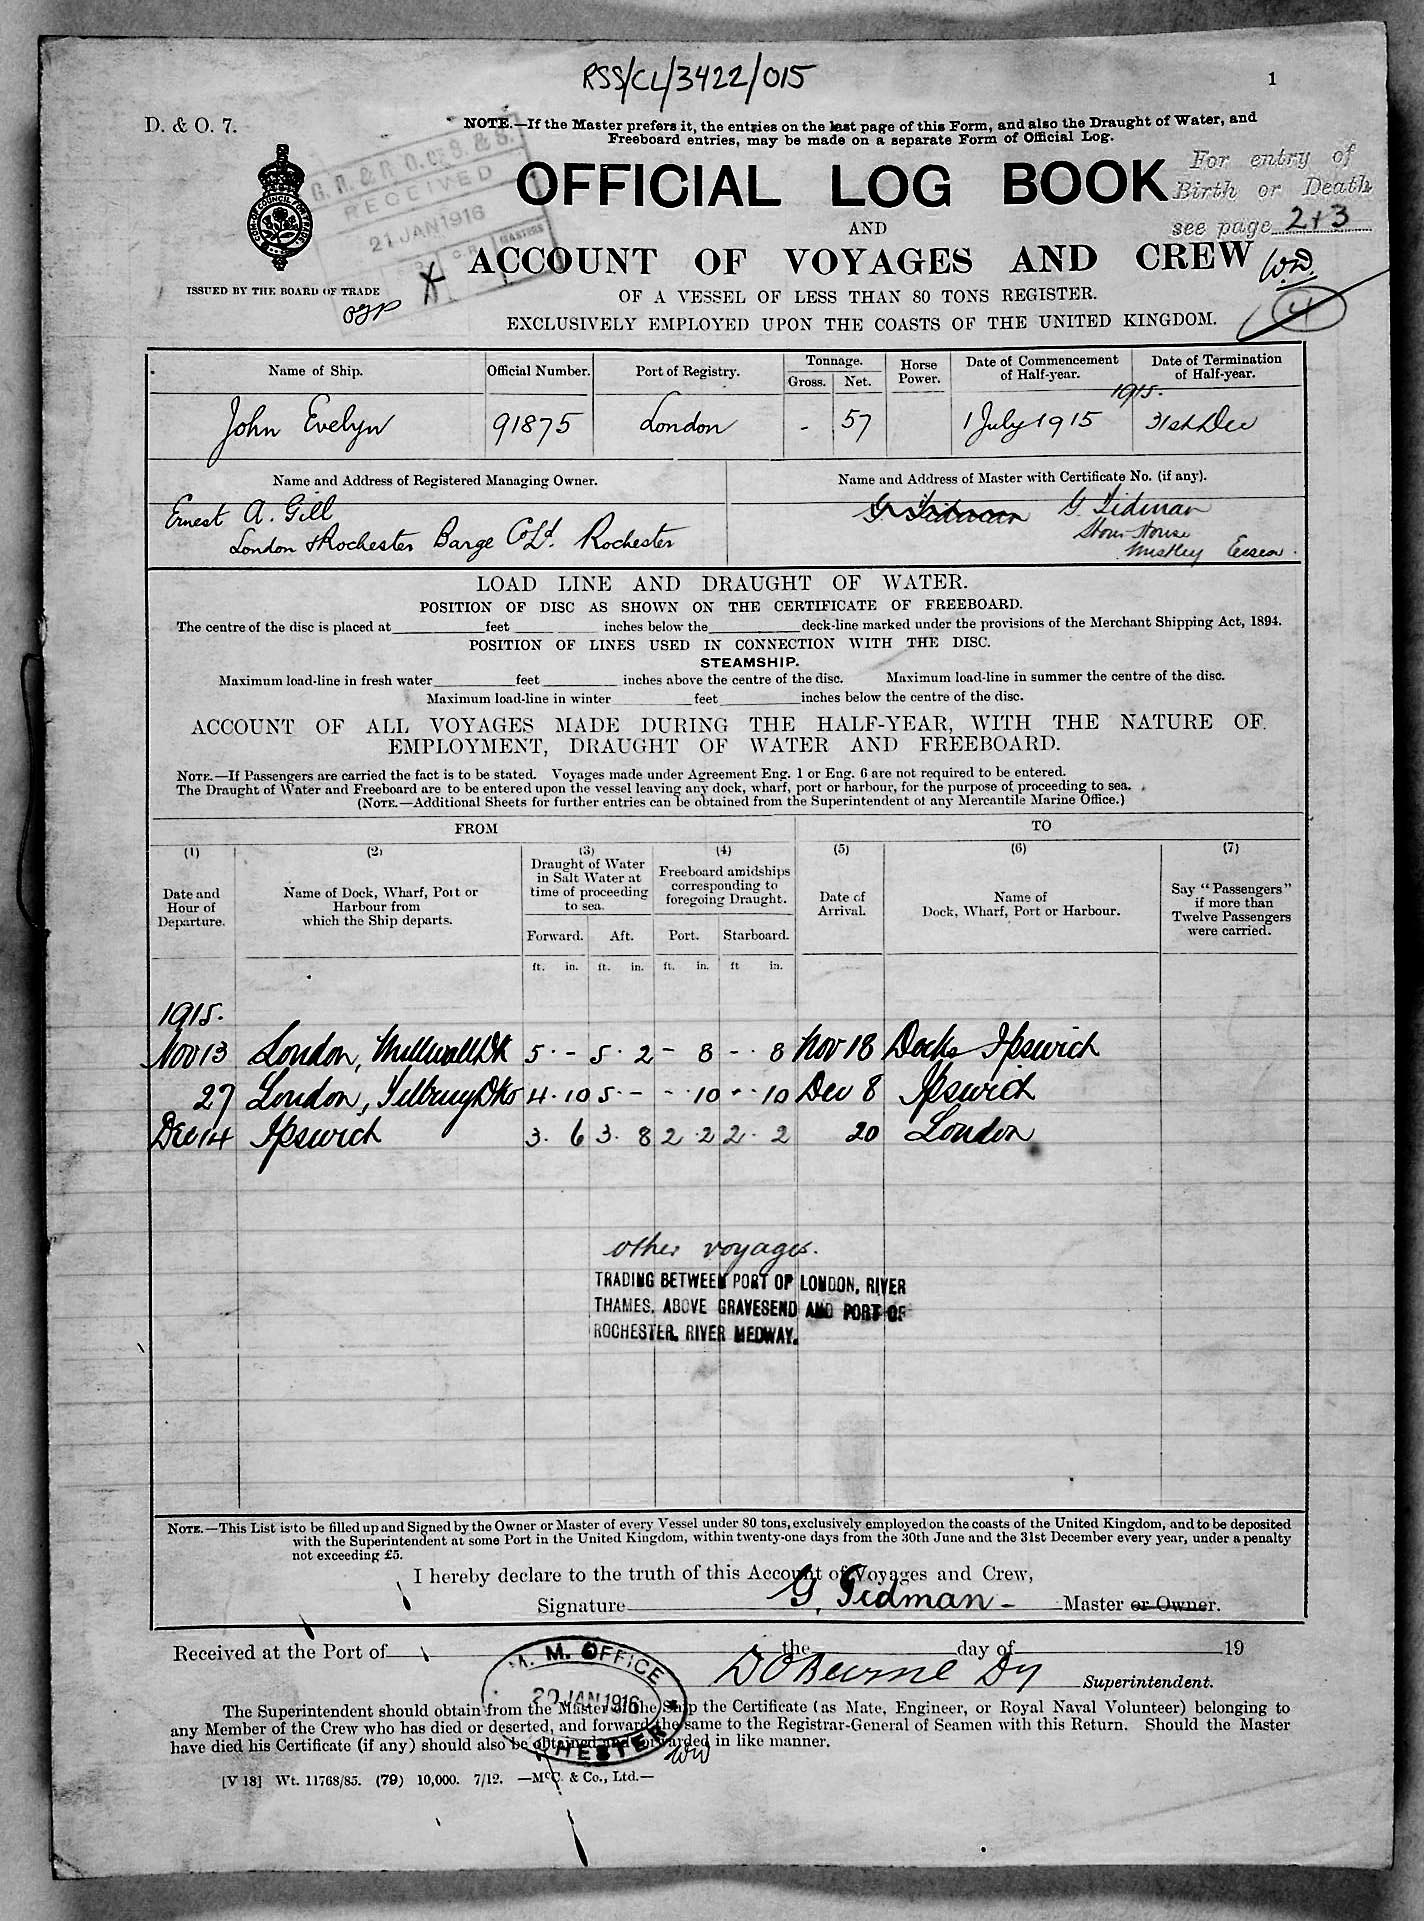 RSS/CL/3422/015
1
D. & O. 7.
NOTE.—If the Master prefers it, the entries on the last page of this Form, and also the Draught of Water, and
Freeboard entries, may be made on a separate Form of Official Log.
G. R. & R. O. of S. & S.
RECEIVED
21 JAN 1916
MASTERS
OFFICIAL LOG BOOK
For entry of
Birth or Death
see page 2+3
AND
ACCOUNT OF VOYAGES AND CREW
ISSUED BY THE BOARD OF TRADE
OF A VESSEL OF LESS THAN 80 TONS REGISTER.
EXCLUSIVELY EMPLOYED UPON THE COASTS OF THE UNITED KINGDOM.
4
Name of Ship. Official Number. Port of Registry. Tonnage. Gross. Net. Horse Power. Date of Commencement of Half-year. Date of Termination of Half-year.
1915.
John Evelyn 91875 London - 57 1 July 1915 31st Dec
Name and Address of Registered Managing Owner. Name and Address of Master with Certificate No. (if any).
Ernest A. Gill G. Tidman G. Tidman
London & Rochester Barge Co Ld. Rochester Stour House
Mistley Essex.
LOAD LINE AND DRAUGHT OF WATER.
POSITION OF DISC AS SHOWN ON THE CERTIFICATE OF FREEBOARD.
The centre of the disc is placed at feet inches below the deck-line marked under the provisions of the Merchant Shipping Act, 1894.
POSITION OF LINES USED IN CONNECTION WITH THE DISC.
STEAMSHIP.
Maximum load-line in fresh water feet inches above the centre of the disc. Maximum load-line in summer the centre of the disc.
Maximum load-line in winter feet inches below the centre of the disc.
ACCOUNT OF ALL VOYAGES MADE DURING THE HALF-YEAR, WITH THE NATURE OF
EMPLOYMENT, DRAUGHT OF WATER AND FREEBOARD.
NOTE.—If Passengers are carried the fact is to be stated. Voyages made under Agreement Eng. 1 or Eng. 6 are not required to be entered.
The Draught of Water and Freeboard are to be entered upon the vessel leaving any dock, wharf, port or harbour, for the purpose of proceeding to sea.
(NOTE.—Additional Sheets for further entries can be obtained from the Superintendent of any Mercantile Marine Office.)
FROM TO
(1) (2) (3) (4) (5) (6) (7)
Date and Hour of Departure. Name of Dock, Wharf, Port or Harbour from which the Ship departs. Draught of Water in Salt Water at time of proceeding to sea. Freeboard amidships corresponding to foregoing Draught. Date of Arrival. Name of Dock, Wharf, Port or Harbour. Say "Passengers" if more than Twelve Passengers were carried.
Forward. Aft. Port. Starboard.
ft. in. ft. in. ft. in. ft in.
1915.
Nov 13 London, Millwall Dk 5 . - 5 . 2 - 8 - . 8 Nov 18 Docks Ipswich
27 London, Tilbury Dks 4 . 10 5 . - - . 10 - . 10 Dec 8 Ipswich
Dec 14 Ipswich 3 . 6 3 . 8 2 . 2 2 . 2 20 London
other voyages.
TRADING BETWEEN PORT OF LONDON, RIVER
THAMES, ABOVE GRAVESEND AND PORT OF
ROCHESTER, RIVER MEDWAY.
NOTE.—This List is to be filled up and Signed by the Owner or Master of every Vessel under 80 tons, exclusively employed on the coasts of the United Kingdom, and to be deposited
with the Superintendent at some Port in the United Kingdom, within twenty-one days from the 30th June and the 31st December every year, under a penalty
not exceeding £5.
I hereby declare to the truth of this Account of Voyages and Crew,
Signature G. Tidman - Master or Owner.
Received at the Port of the day of 19
M. M. OFFICE
20 JAN 1916
Superintendent.
The Superintendent should obtain from the Master of the Ship the Certificate (as Mate, Engineer, or Royal Naval Volunteer) belonging to
any Member of the Crew who has died or deserted, and forward the same to the Registrar-General of Seamen with this Return. Should the Master
have died his Certificate (if any) should also be obtained and forwarded in like manner.
[V 18] Wt. 11768/85. (79) 10,000. 7/12. —McC. & Co., Ltd.—